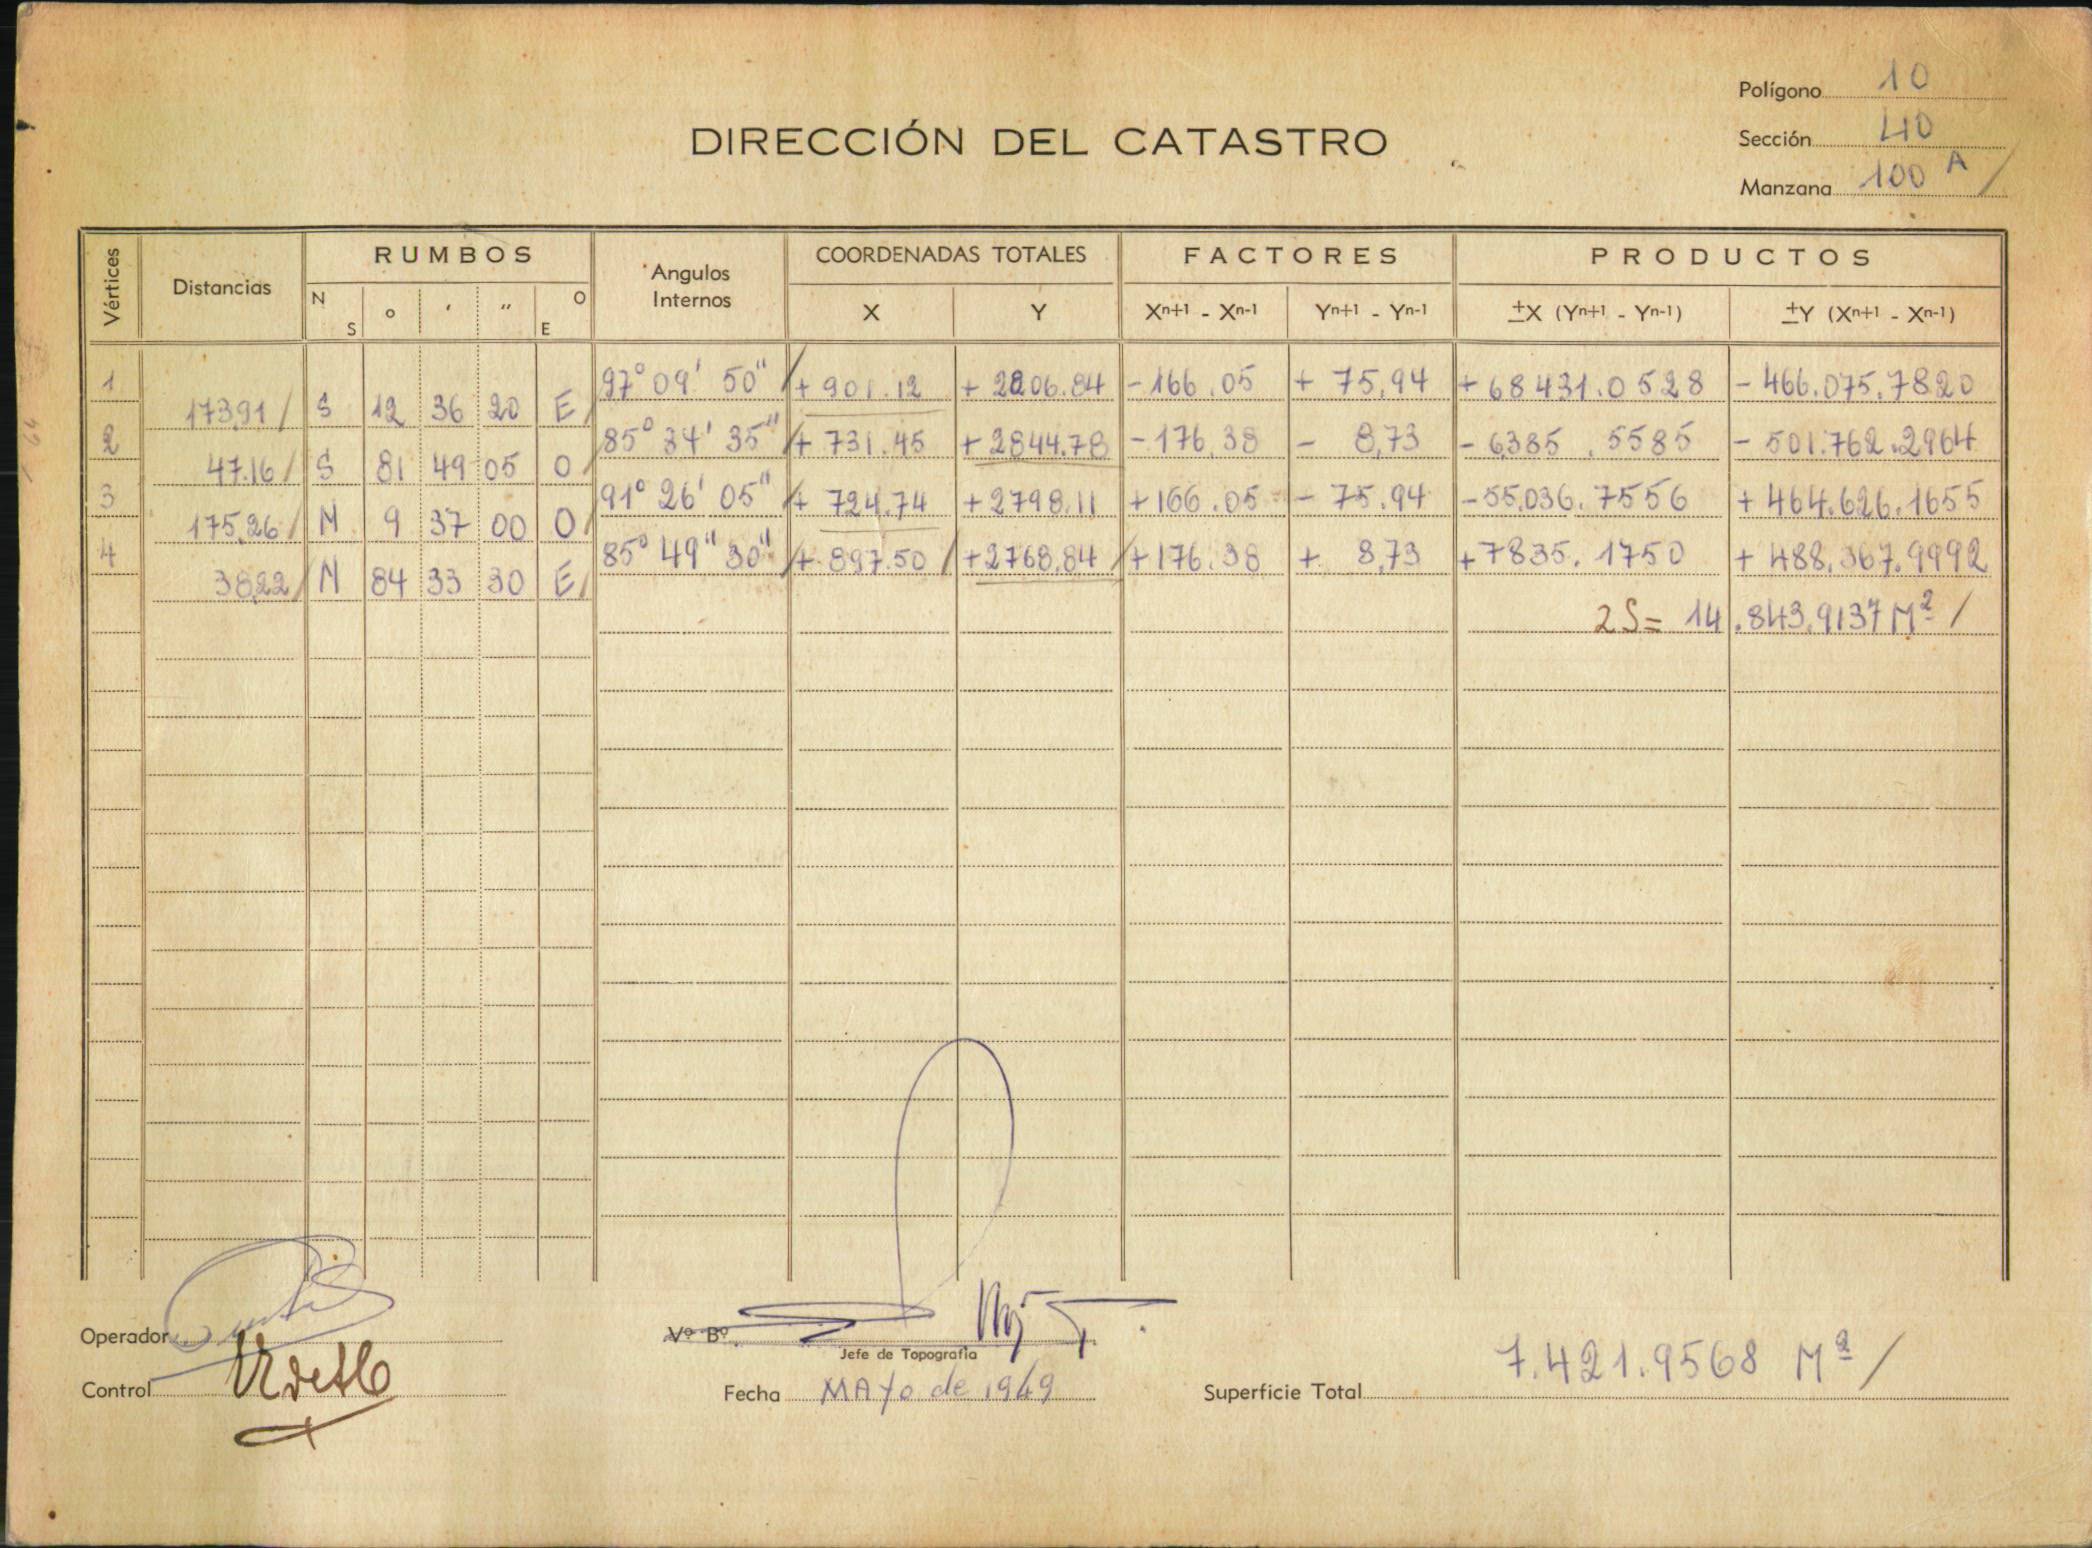 Polígono 10
DIRECCIÓN DEL CATASTRO
Sección 40
Manzana 100 A /
Vértices Distancias RUMBOS Angulos Internos COORDENADAS TOTALES FACTORES PRODUCTOS
N S ° ' " O E X Y Xn+1 - Xn-1 Yn+1 - Yn-1 ±X (Yn+1 - Yn-1) ±Y (Xn+1 - Xn-1)
1 97° 09' 50" + 901.12 + 2806.84 - 166.05 + 75,94 + 68431.0528 - 466.075.7820
173,91 / S 12 36 20 E /
2 85° 34' 35" + 731.45 + 2844.78 - 176,38 - 8,73 - 6385.5585 - 501.762.2964
47.16 / S 81 49 05 O
3 91° 26' 05" + 724.74 + 2798.11 + 166.05 - 75.94 - 55,036.7556 + 464.626.1655
175,26 / N 9 37 00 O /
4 85° 49" 30" + 897.50 / + 2768,84 / + 176.38 + 8,73 + 7835.1750 + 488.367.9992
38,22 / N 84 33 30 E /
2S = 14.843.9137 M² /
Operador
Vº Bº
Jefe de Topografía
Control
Fecha MAYO de 1949
Superficie Total 7.421.9568 M² /